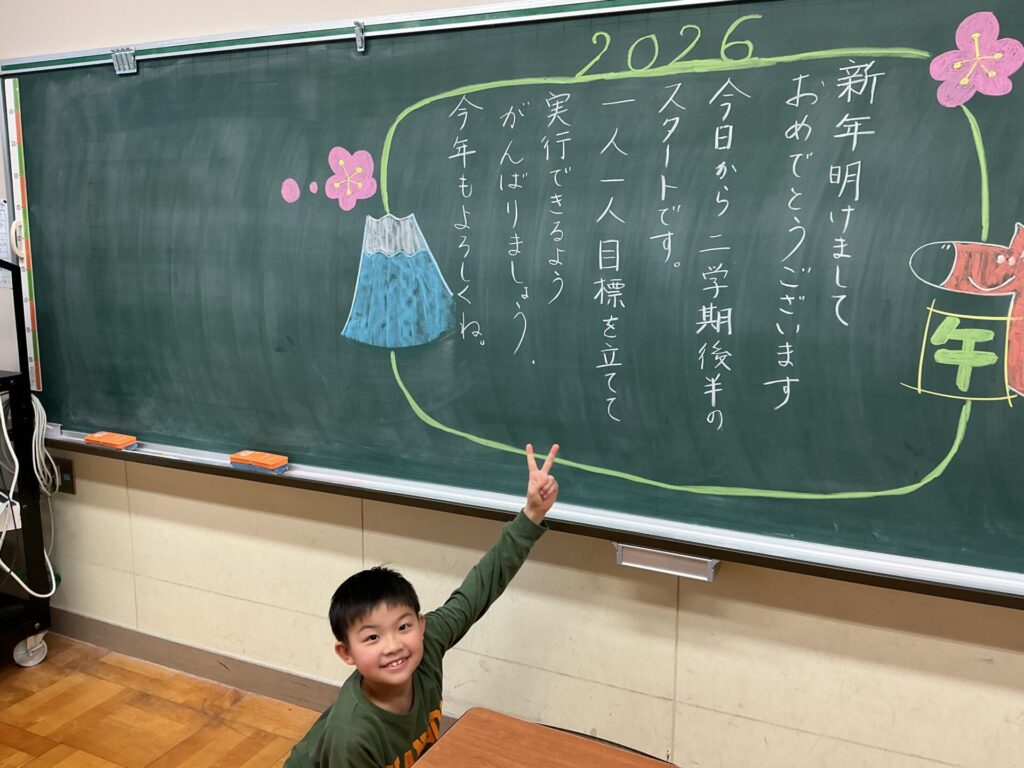 2026
新年明けまして
おめでとうございます
今日から二学期後半の
スタートです。
一人一人目標を立てて
実行できるよう
がんばりましょう.
今年もよろしくね。
午